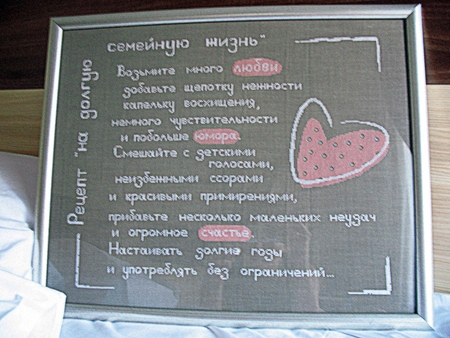 Рецепт "на долгую
семейную жизнь"
Возьмите много любви
добавьте щепотку нежности
капельку восхищения,
немного чувствительности
и побольше юмора.
Смешайте с детскими
голосами,
неизбежными ссорами
и красивыми примирениями,
прибавьте несколько маленьких неудач
и огромное счастье.
Настаивать долгие годы
и употреблять без ограничений...